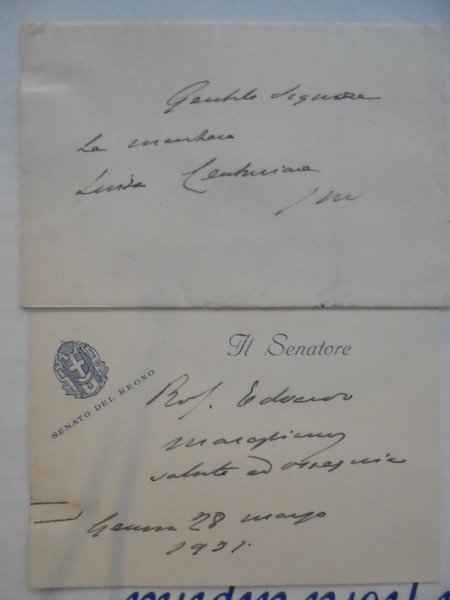 Gentile Signora
La marchesa
Luisa Centurione
Il Senatore
SENATO DEL REGNO
Prof. Edoardo
Maragliano
saluta ed ossequia
Genova 28 marzo
1931.